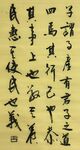 子謂子產有君子之道
四焉其行己也恭
其事上也敬其養
民也惠其使民也義